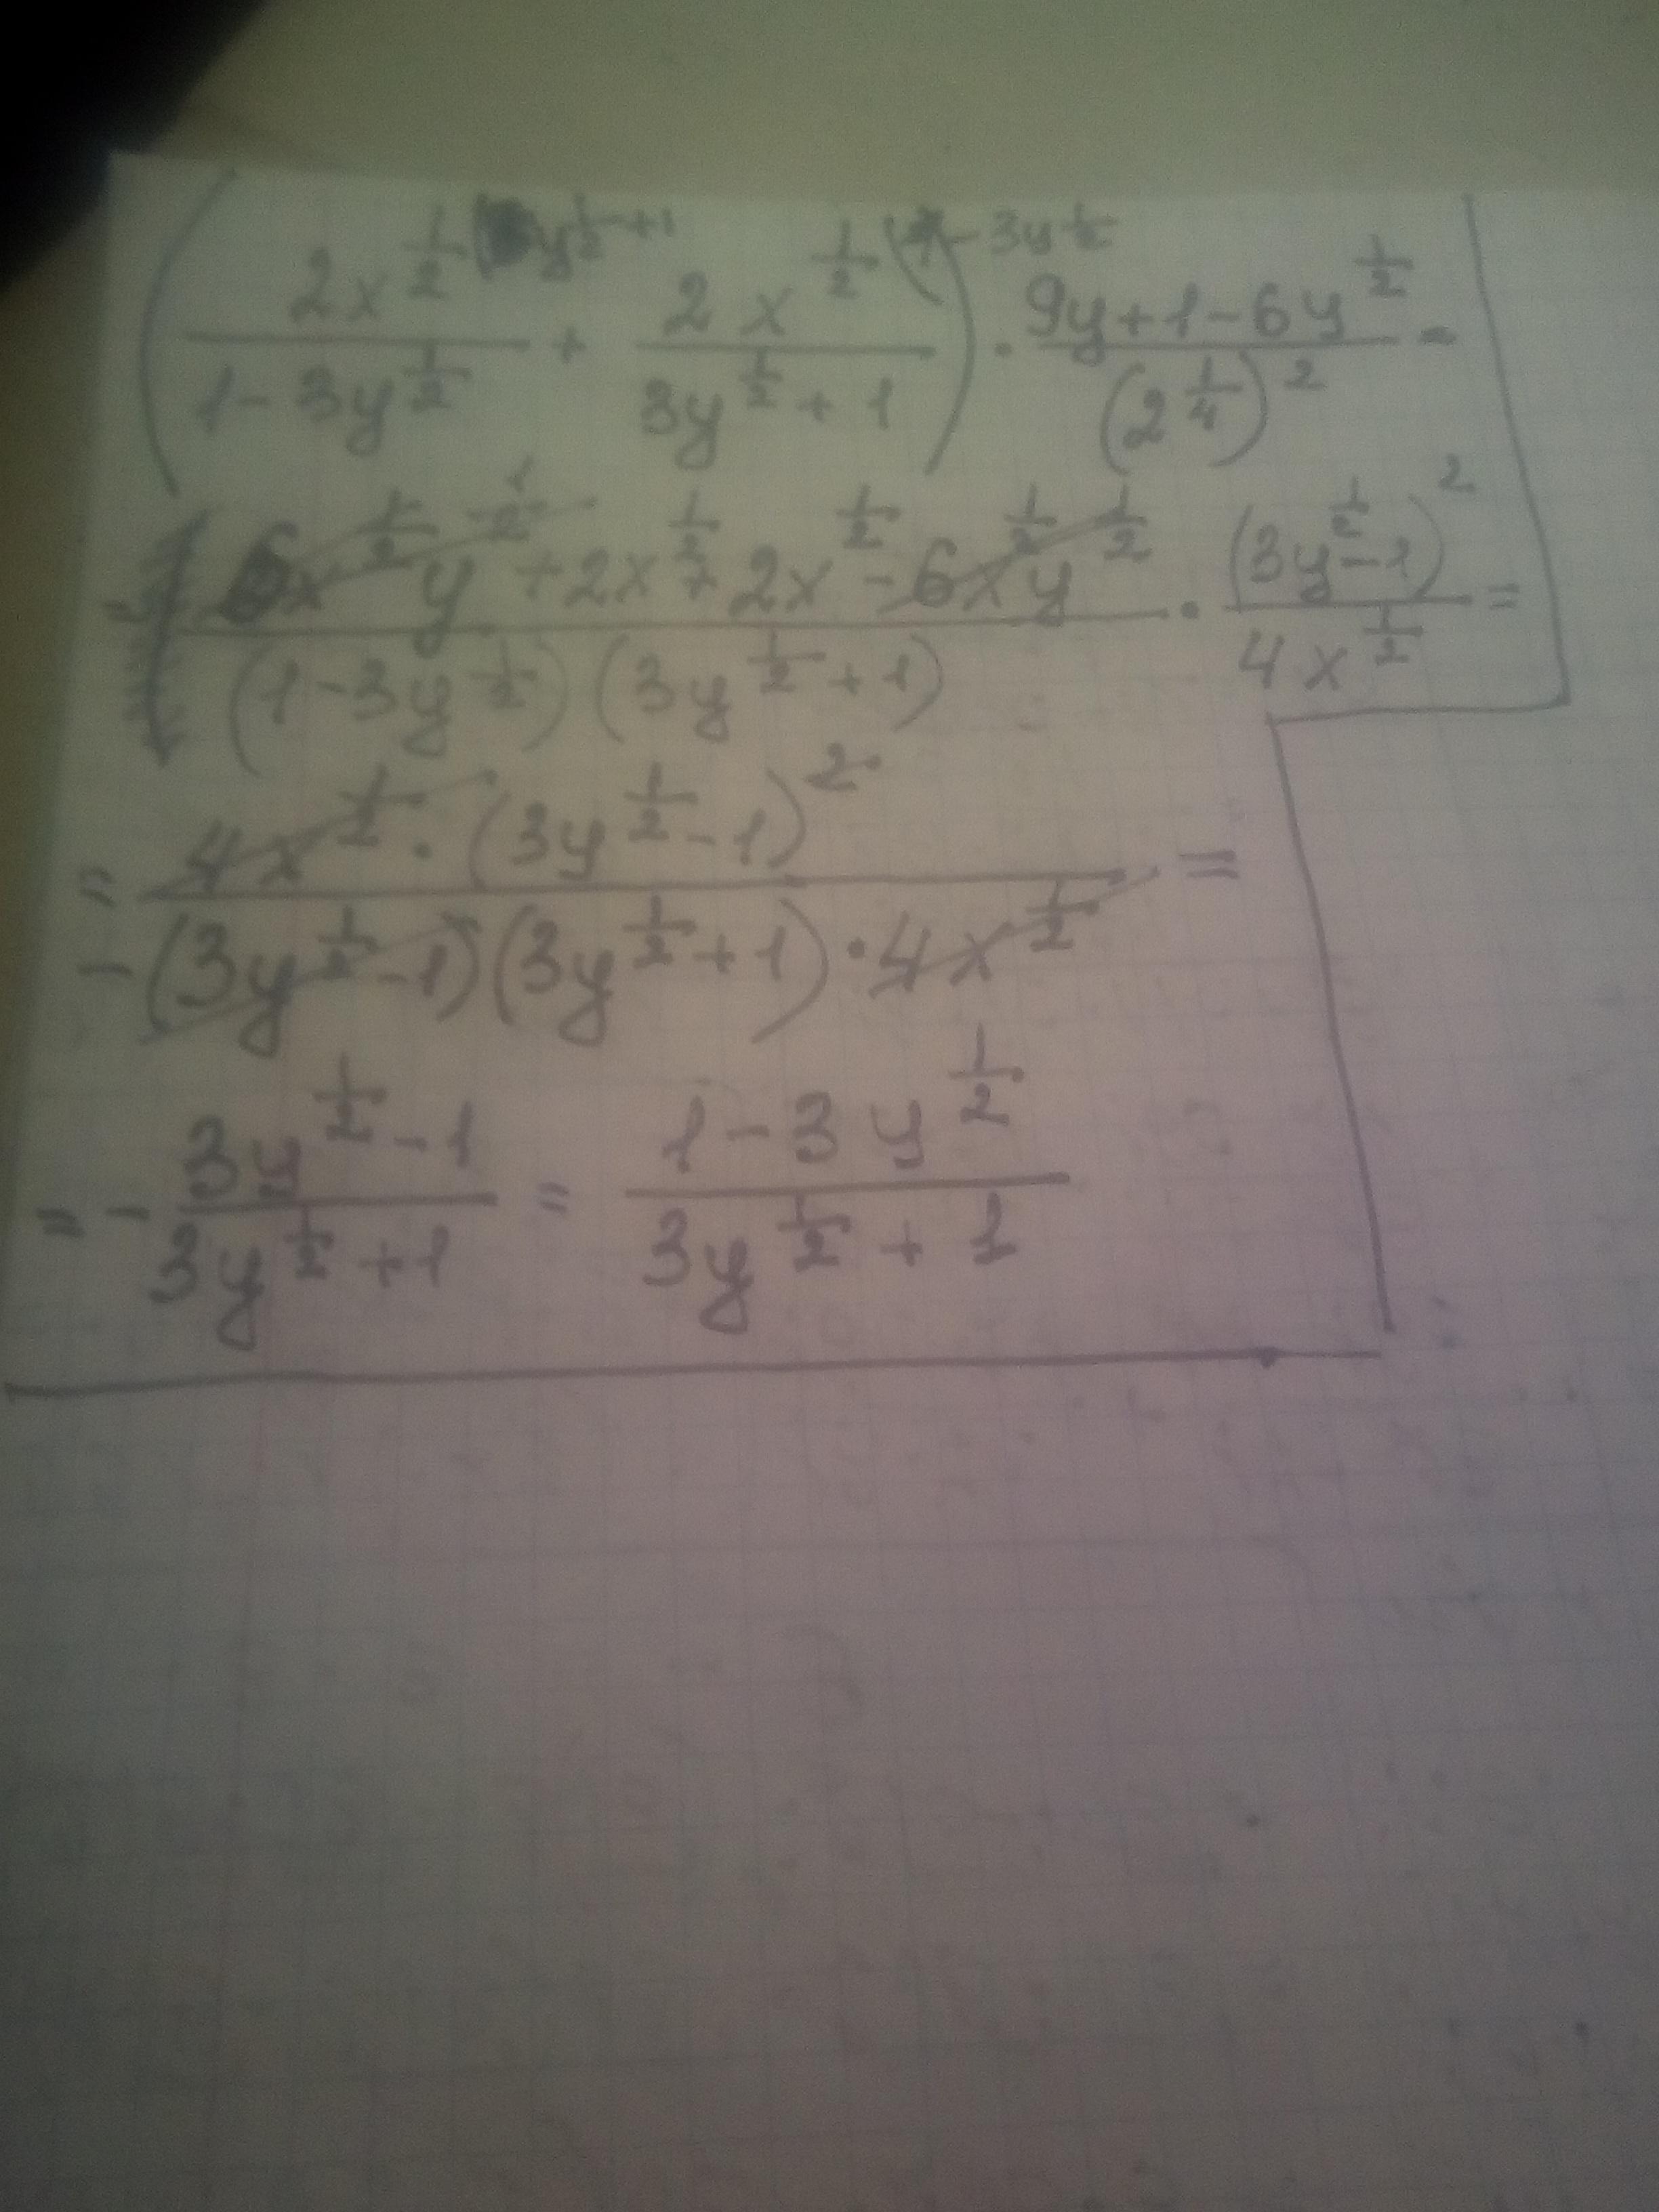 (2x^{1/2}(3y^{1/2}+1 / 1-3y^{1/2} + 2x^{1/2}(1-3y^{1/2} / 3y^{1/2}+1) · 9y+1-6y^{1/2} / (2^{1/4})^2 =
= 6x^{1/2}y^{1/2}+2x^{1/2}+2x^{1/2}-6x^{1/2}y^{1/2} / (1-3y^{1/2})(3y^{1/2}+1) · (3y^{1/2}-1)^2 / 4x^{1/2} =
= 4x^{1/2}·(3y^{1/2}-1)^2 / -(3y^{1/2}-1)(3y^{1/2}+1)·4x^{1/2} =
= - 3y^{1/2}-1 / 3y^{1/2}+1 = 1-3y^{1/2} / 3y^{1/2}+1